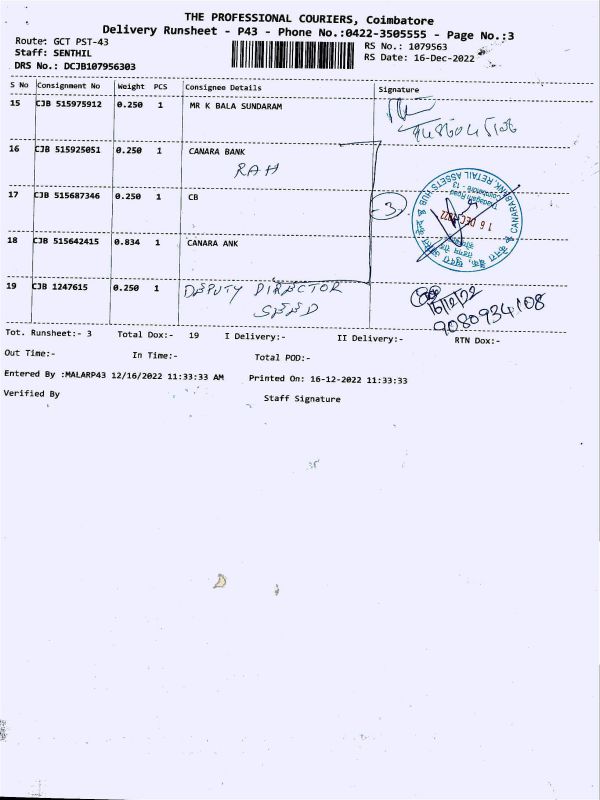 THE PROFESSIONAL COURIERS, Coimbatore
Delivery Runsheet - P43 - Phone No.:0422-3505555 - Page No.:3
Route: GCT PST-43 RS No.: 1079563
Staff: SENTHIL RS Date: 16-Dec-2022
DRS No.: DCJB107956303
S No Consignment No Weight PCS Consignee Details Signature
15 CJB 515975912 0.250 1 MR K BALA SUNDARAM
16 CJB 515925051 0.250 1 CANARA BANK
RAH
17 CJB 515687346 0.250 1 CB -3
CANARA BANK, RETAIL ASSETS HUB
Coimbatore - 13
16 DEC 2022
18 CJB 515642415 0.834 1 CANARA ANK
19 CJB 1247615 0.250 1 DEPUTY DIRECTOR
SEED 9080934108
Tot. Runsheet:- 3 Total Dox:- 19 I Delivery:- II Delivery:- RTN Dox:-
Out Time:- In Time:- Total POD:-
Entered By :MALARP43 12/16/2022 11:33:33 AM Printed On: 16-12-2022 11:33:33
Verified By Staff Signature